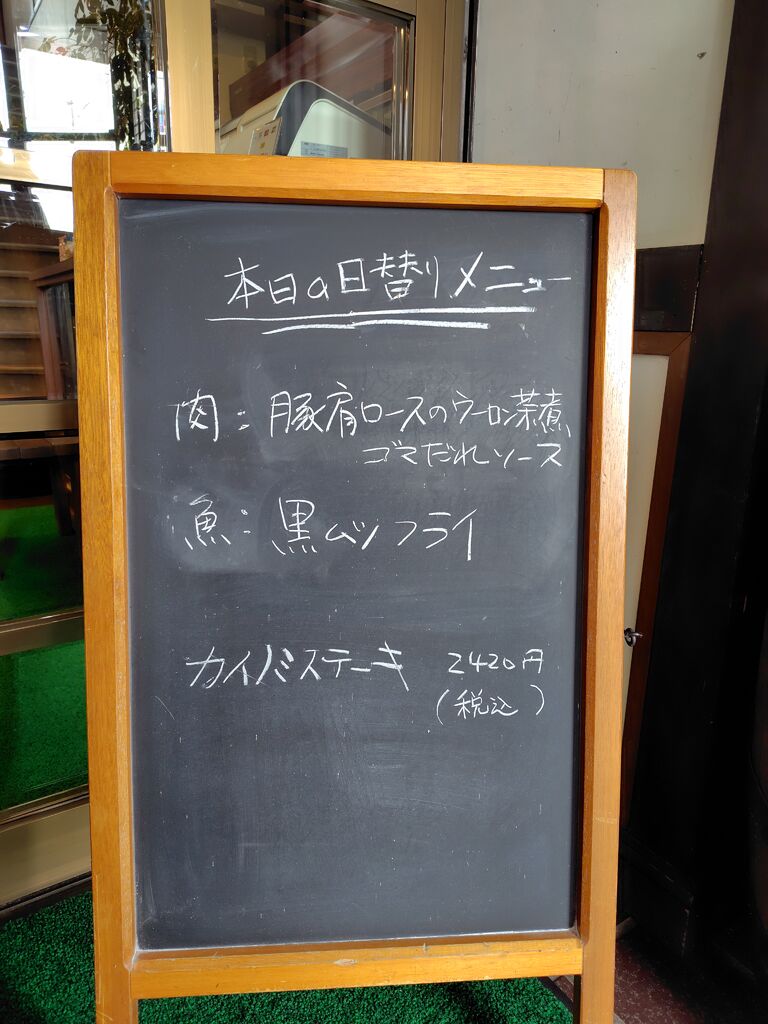 本日の日替りメニュー
肉：豚肩ロースのウーロン茶煮
ゴマだれソース
魚：黒ムツフライ
カイノミステーキ 2420円
(税込)